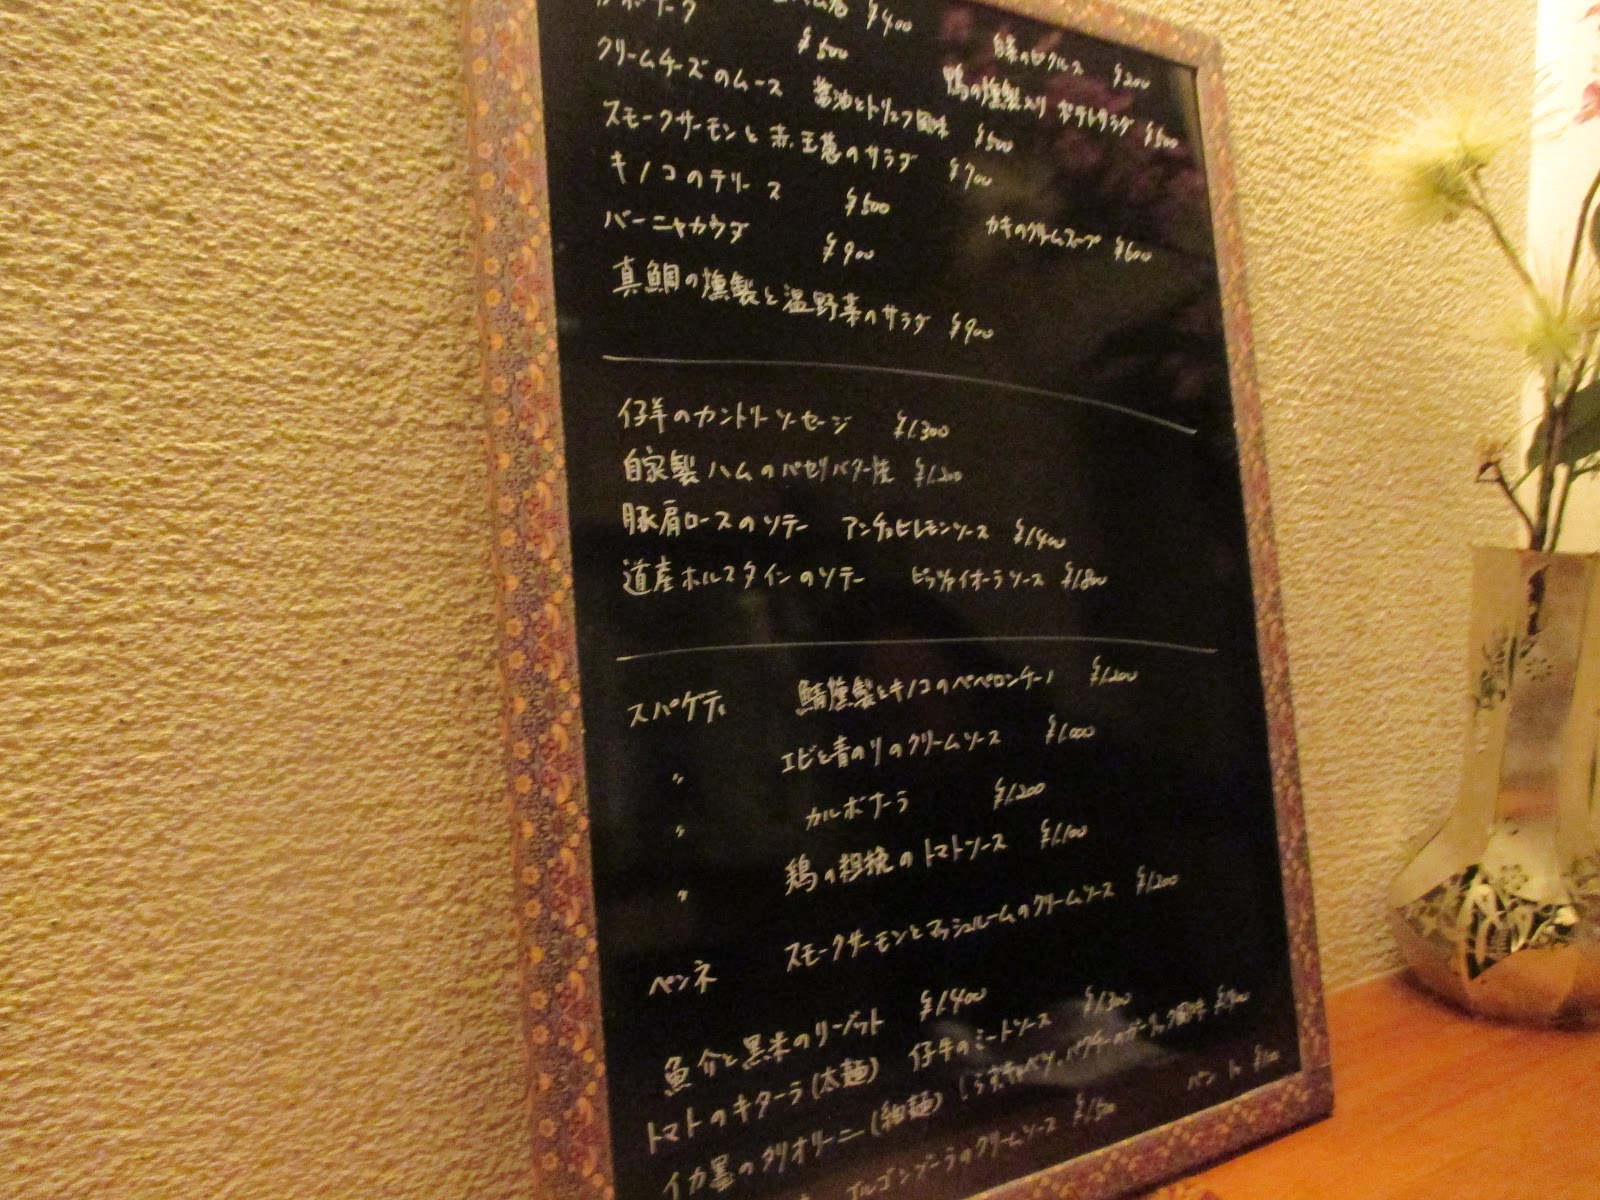 ¥400
¥500
野菜のピクルス ¥200
クリームチーズのムース 醤油とトリュフ風味 ¥500
鴨の燻製入り ポテトサラダ ¥500
スモークサーモンと赤玉葱のサラダ ¥700
キノコのテリーヌ ¥500
カキのクリームスープ ¥600
バーニャカウダ ¥900
真鯛の燻製と温野菜のサラダ ¥900
仔羊のカントリーソーセージ ¥1.300
自家製ハムのパセリバター焼 ¥1.200
豚肩ロースのソテー アンチョビレモンソース ¥1.400
道産ホルスタインのソテー ピッツァイオーラソース ¥1.800
スパゲティ 鯖燻製とキノコのペペロンチーノ ¥1.200
〃 エビと青のりのクリームソース ¥1.000
〃 カルボナーラ ¥1.200
〃 鶏の粗挽のトマトソース ¥1.100
ペンネ スモークサーモンとマッシュルームのクリームソース ¥1.200
魚介と黒米のリーゾット ¥1.400
トマトのキターラ(太麺) 仔牛のミートソース ¥1.300
イカ墨のタリオリーニ(細麺) パクチーのガーリック風味
パン ¥100
ゴルゴンゾーラのクリームソース ¥1.500